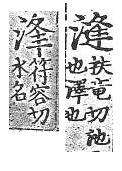 漨
扶竜切池
也澤也
浲
符容切
水名